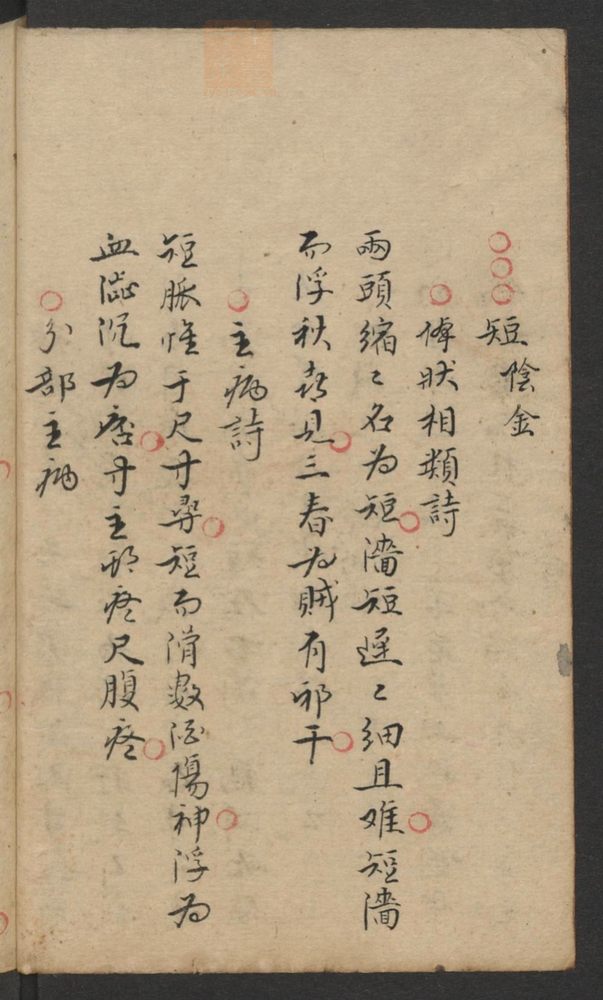 ○○○短 陰金
○体状相類詩
兩頭縮〻名为短○濇短遲〻细且难○短濇
而浮秋喜見○三春为賊有邪干○
○主病詩
短脈惟于尺寸尋○短而滑數酒傷神○浮为
血澁沉为痞○寸主頭疼尺腹疼○
○分部主病